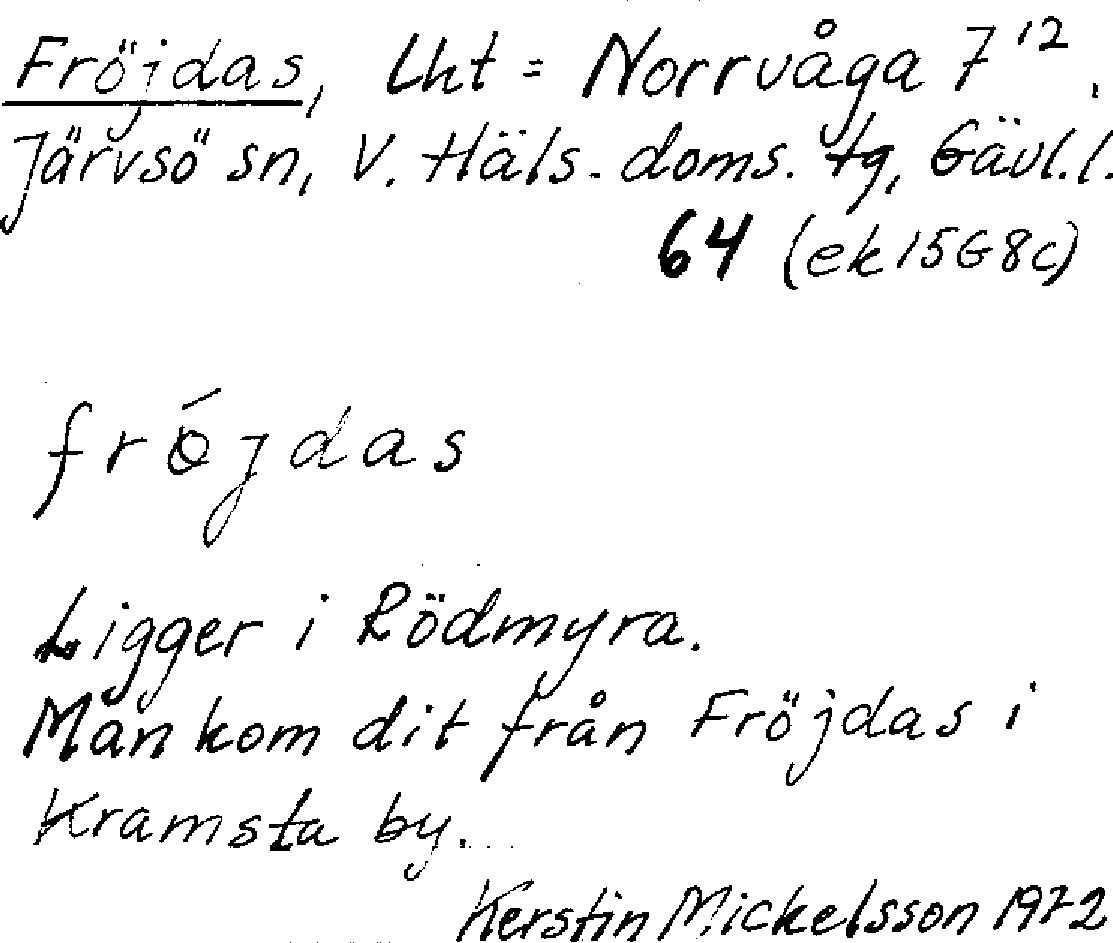 Fröjdas, Lht = Norrvåga 7¹².
Järvsö sn, V. Häls. doms. tg, Gävl.l.
64 (ek15G8c)
fröjdas
Ligger i Rödmyra.
Man kom dit från Fröjdas i
Kramsta by.
Kerstin Mickelsson 1972